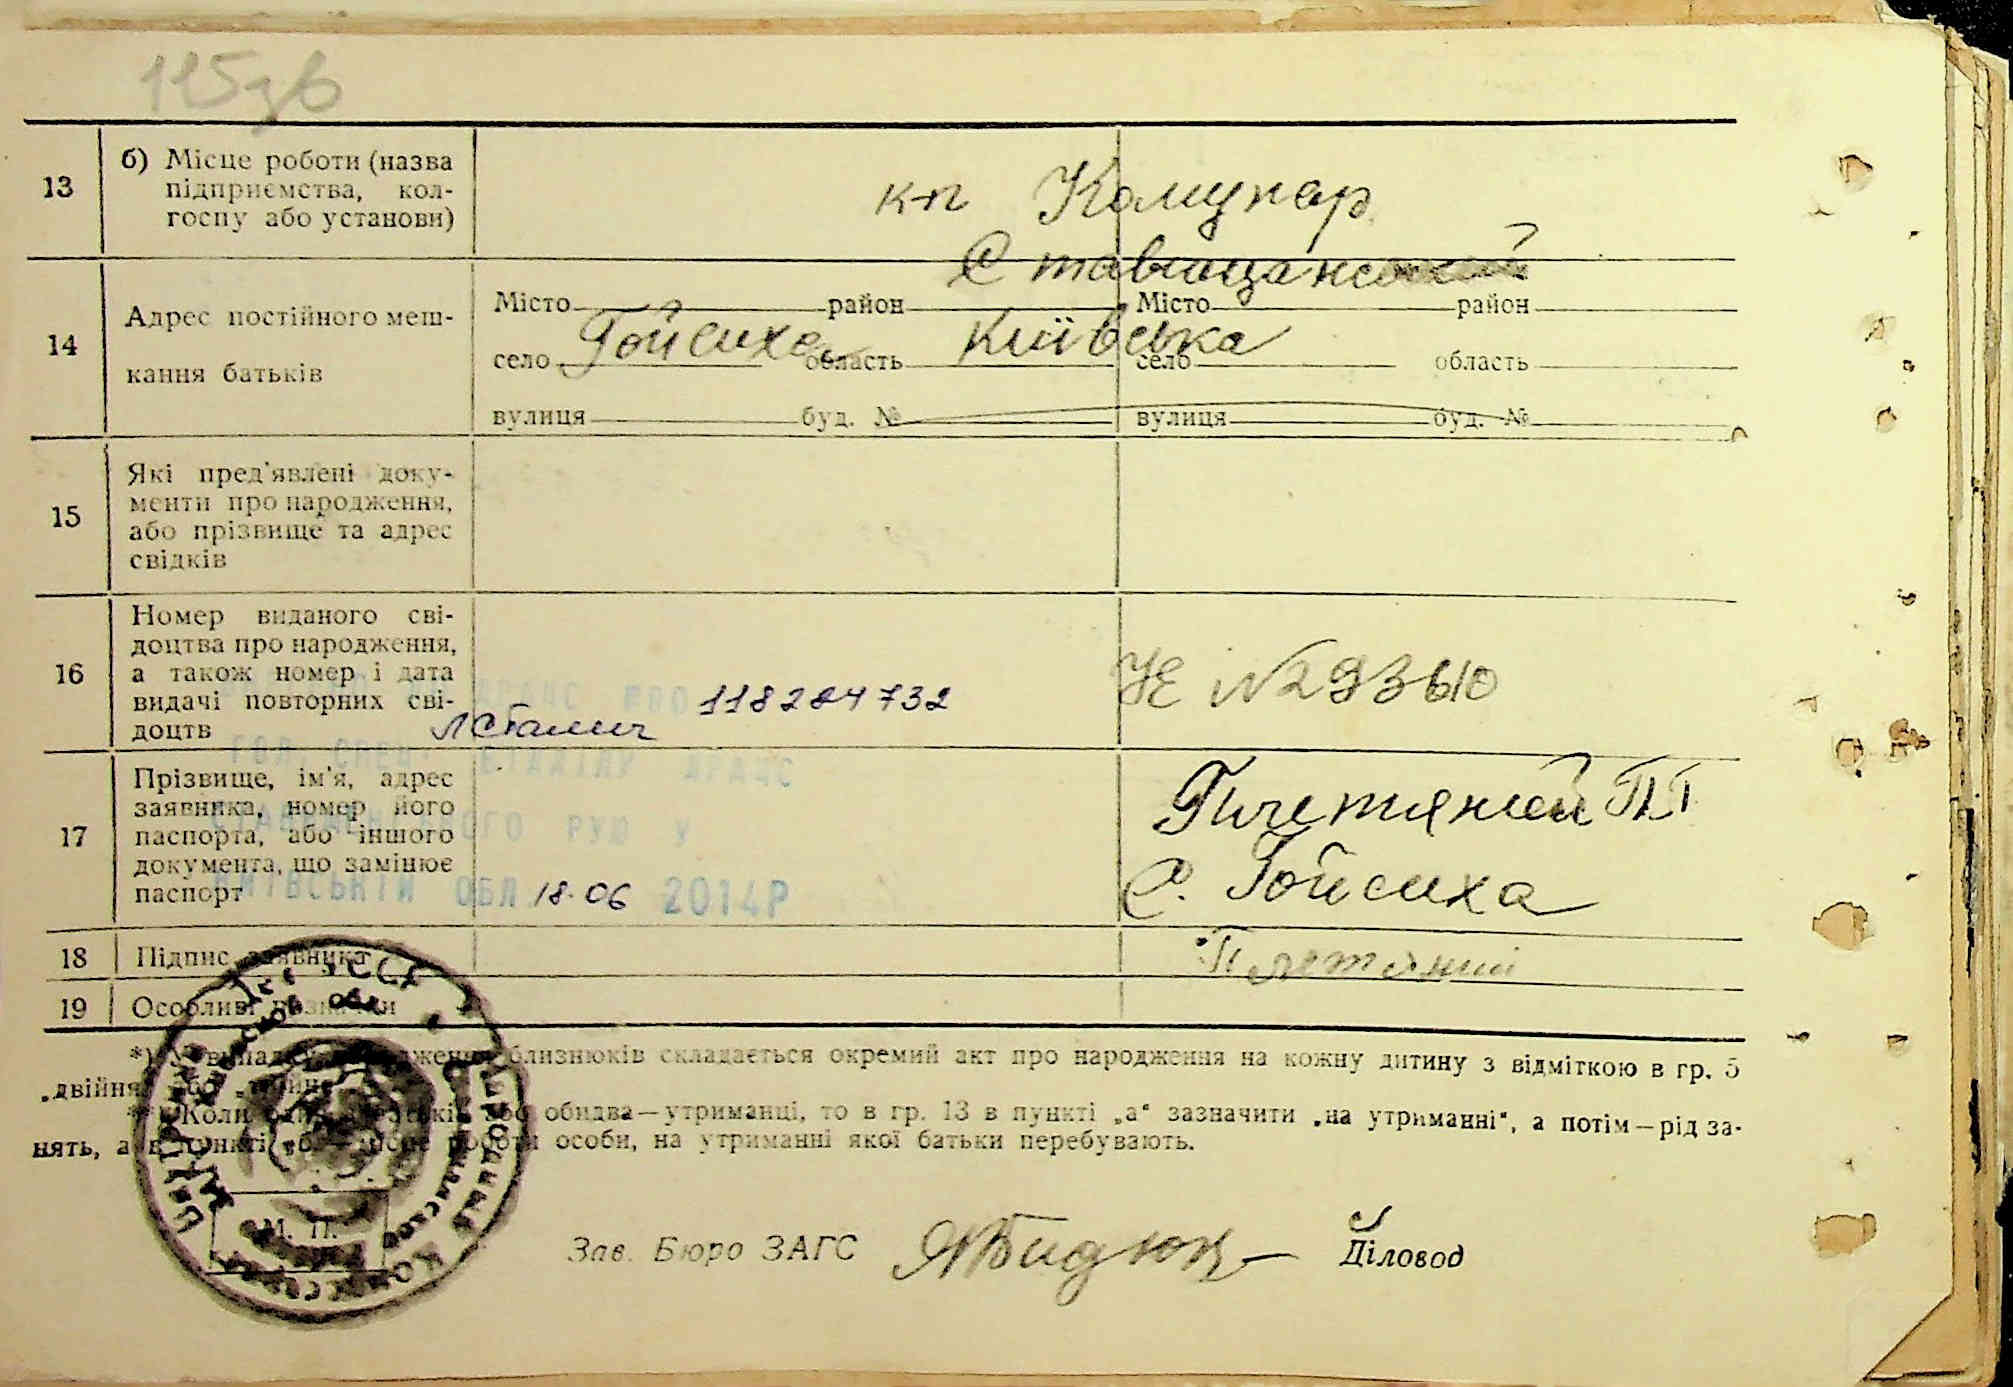 115зв
13
б) Місце роботи (назва
підприємства, кол-
госпу або установи)
к-п Комунар
Ставищанський
14
Адрес постійного меш-
кання батьків
Місто район Місто район
село Гойсиха область Київська село область
вулиця буд. № вулиця буд. №
15
Які пред'явлені доку-
менти про народження,
або прізвище та адрес
свідків
16
Номер виданого сві-
доцтва про народження,
а також номер і дата
видачі повторних сві-
доцтв
118284732
УЕ №293610
ДРАЦС
ГОЛ. СПЕЦ. ВІДДІЛУ ДРАЦС
СТАВИЩЕНСЬКОГО РУЮ У
КИЇВСЬКІЙ ОБЛ. 18.06 2014Р
17
Прізвище, ім'я, адрес
заявника, номер його
паспорта, або іншого
документа, що замінює
паспорт
с. Гойсиха
18
Підпис заявника
Плетяний
19
Особливі позначки
*) У випадку народження близнюків складається окремий акт про народження на кожну дитину з відміткою в гр. 5
„двійня" або
**) Коли один з батьків або обидва—утриманці, то в гр. 13 в пункті „а" зазначити „на утриманні", а потім—рід за-
нять, а в пункті „б"—місце роботи особи, на утриманні якої батьки перебувають.
М. П.
Зав. Бюро ЗАГС
Діловод